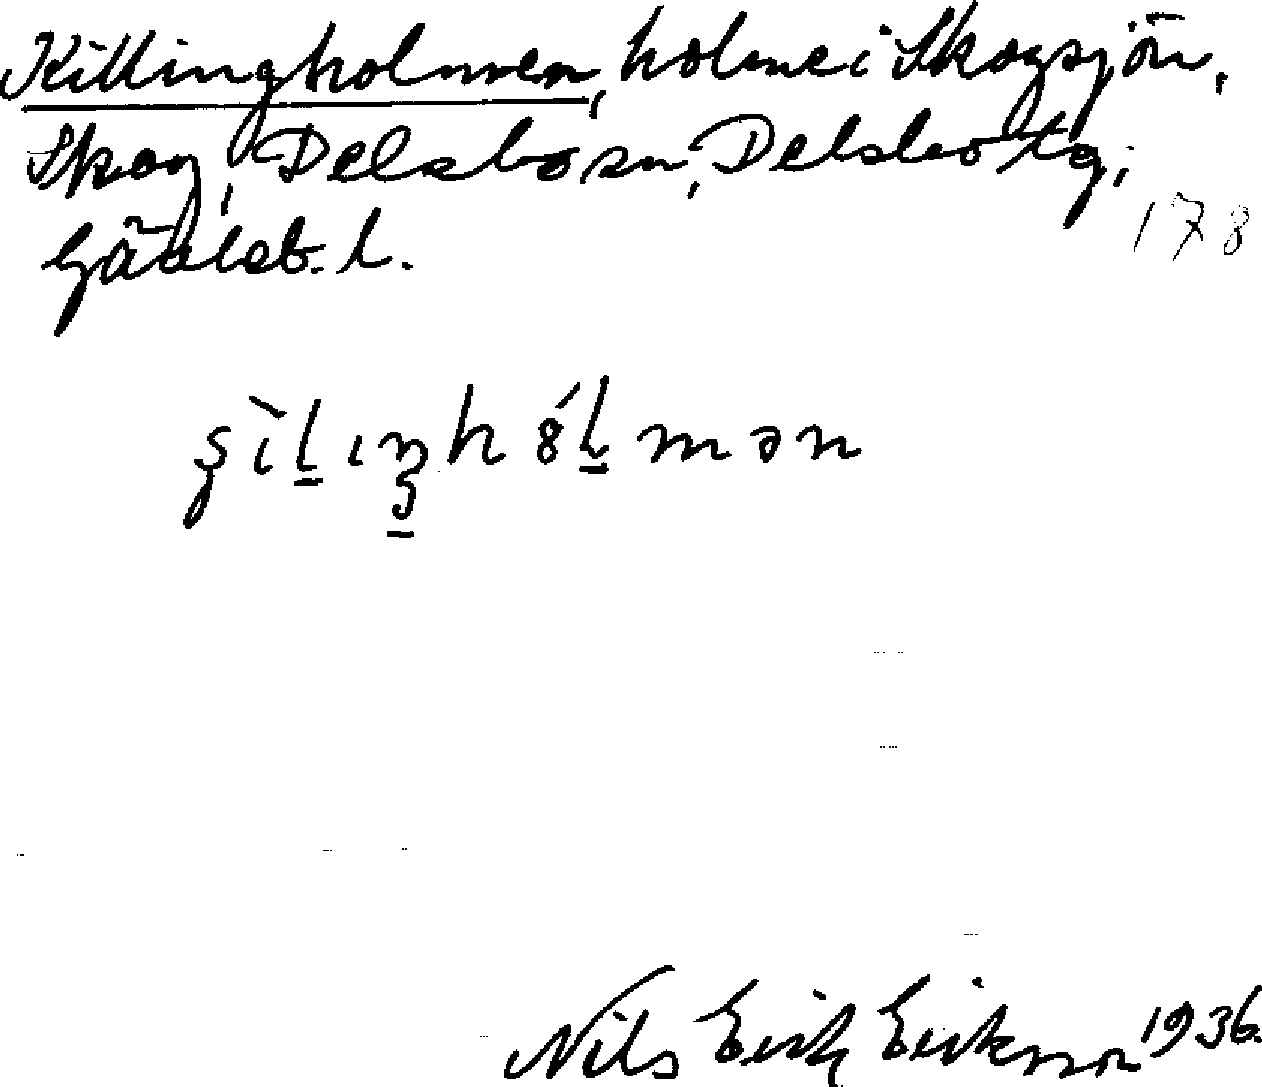 Killingholmen, holme i Skogsjön,
Skog, Delsbo sn, Delsbo tg,
Gävleb. l.
178
Nils Erik Eriksson 1936.